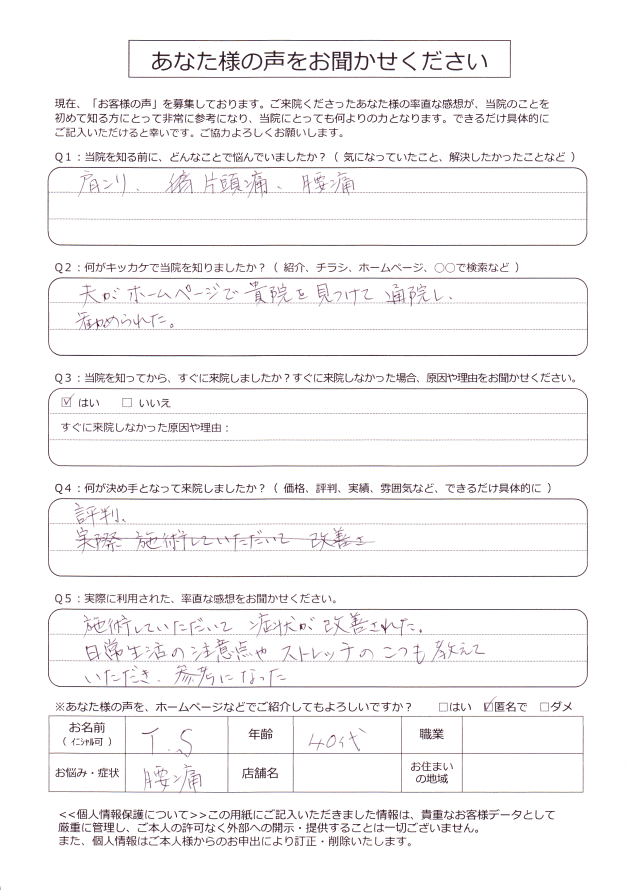 あなた様の声をお聞かせください
現在、「お客様の声」を募集しております。ご来院くださったあなた様の率直な感想が、当院のことを
初めて知る方にとって非常に参考になり、当院にとっても何よりの力となります。できるだけ具体的に
ご記入いただけると幸いです。ご協力よろしくお願いします。
Q1：当院を知る前に、どんなことで悩んでいましたか？（ 気になっていたこと、解決したかったことなど ）
肩コリ、片頭痛、腰痛
Q2：何がキッカケで当院を知りましたか？（ 紹介、チラシ、ホームページ、○○で検索など ）
夫がホームページで貴院を見つけて通院し、
勧められた。
Q3：当院を知ってから、すぐに来院しましたか？すぐに来院しなかった場合、原因や理由をお聞かせください。
☑ はい ☐ いいえ
すぐに来院しなかった原因や理由：
Q4：何が決め手となって来院しましたか？（ 価格、評判、実績、雰囲気など、できるだけ具体的に ）
評判、
実際 施術していただいて 改善さ
Q5：実際に利用された、率直な感想をお聞かせください。
施術していただいて 症状が改善された。
日常生活の注意点や ストレッチのこつも教えて
いただき、参考になった
※あなた様の声を、ホームページなどでご紹介してもよろしいですか？ ☐はい ☑匿名で ☐ダメ
お名前 T.S 年齢 40代 職業
（ ｲﾆｼｬﾙ可 ）
お悩み・症状 腰痛 店舗名 お住まい
の地域
<<個人情報保護について>>この用紙にご記入いただきました情報は、貴重なお客様データとして
厳重に管理し、ご本人の許可なく外部への開示・提供することは一切ございません。
また、個人情報はご本人様からのお申出により訂正・削除いたします。